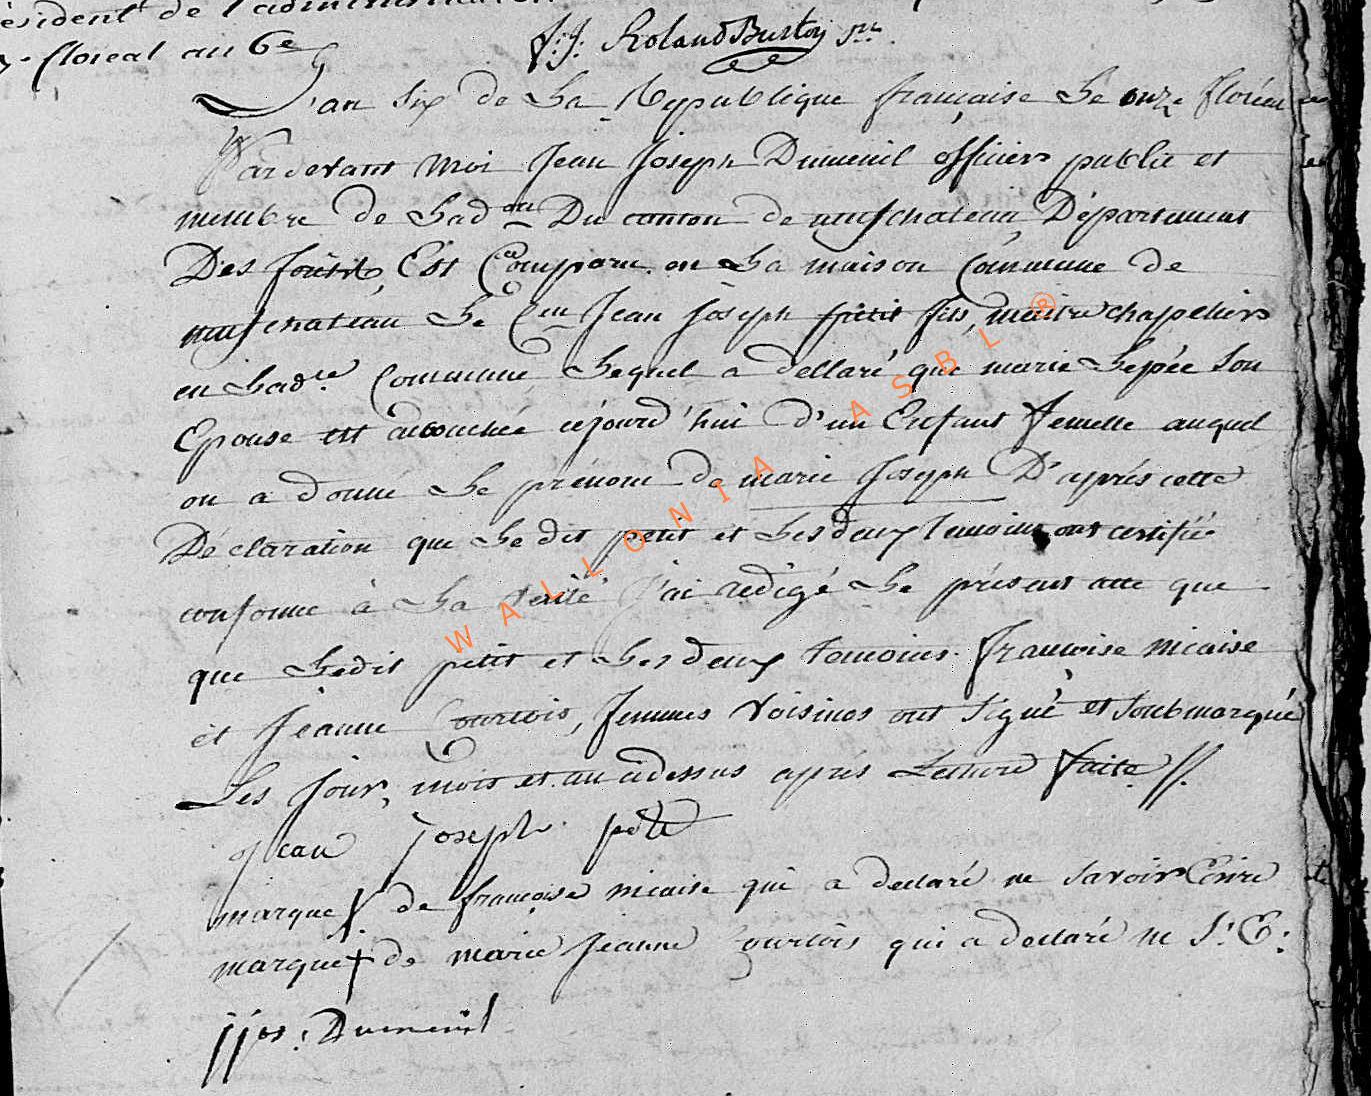 ésident de l'administration
floreal an 6e J:J: Roland Burton srec
L'an Six de La Republique française Le onze floréal
Pardevant moi Jean Joseph Dumenil officier public et
membre de Lad.on Du canton de neufchateau, Département
Des forêts, Est Comparu en La maison Commune de
neufchateau Le C.en Jean Joseph petit fils, maitre chapelier
en Lad.te Commune Lequel a déclaré que marie Lepée Son
Epouse est accouchée cejourd'hui d'un Enfant femelle auquel
on a donné Le prénom de marie Joseph D'après cette
Déclaration que Ledit petit et Les deux temoins ont certifié
conforme à La vérité J'ai redigé Le présent acte que
que Ledit petit et Les deux temoins françoise nicaise
et Jeanne Courtois, femmes Voisines ont Signé et Soubmarqué
Les Jour, mois et an cidessus après Lecture faite //.
Jean joseph petit
marque de françoise nicaise qui a declaré ne Savoir Ecrire
marque + de marie Jeanne Courtois qui a declaré ne S: E:
jjos: Dumenil
WALLONIA ASBL ®